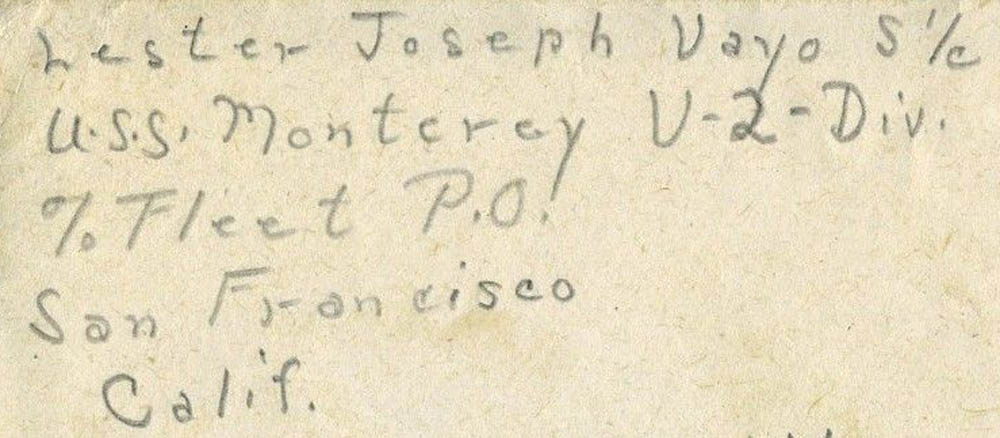 Lester Joseph Vayo S 1/c
U.S.S. Monterey V-2-Div.
% Fleet P.O.
San Francisco
Calif.